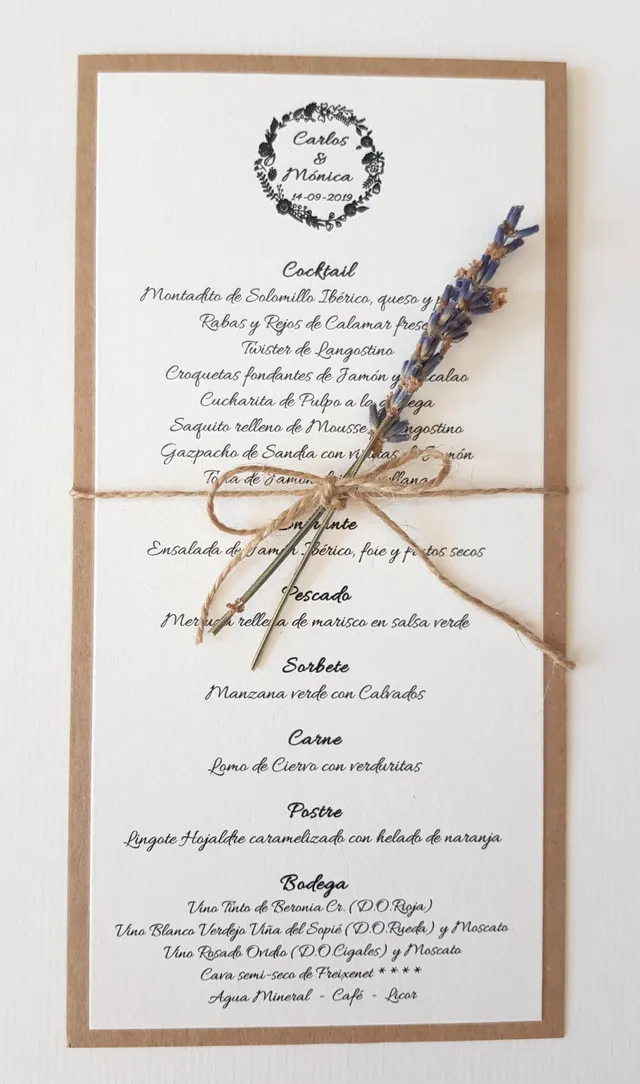 Carlos
&
Mónica
14-09-2019
Cocktail
Montadito de Solomillo Ibérico, queso y
Rabas y Rejos de Calamar
Twister de Langostino
Croquetas fondantes de Jamón y
Cucharita de Pulpo a la
Saquito relleno de Mousse
Gazpacho de Sandía con de Jamón
de
Entrante
Ensalada de Jamón Ibérico, foie y frutos secos
Pescado
Merluza rellena de marisco en salsa verde
Sorbete
Manzana verde con Calvados
Carne
Lomo de Ciervo con verduritas
Postre
Lingote Hojaldre caramelizado con helado de naranja
Bodega
Vino Tinto de Beronia Cr. (D.O.Rioja)
Vino Blanco Verdejo Viña del Sopié (D.O.Rueda) y Moscato
Vino Rosado Ovidio (D.O.Cigales) y Moscato
Cava semi-seco de Freixenet ****
Agua Mineral - Café - Licor